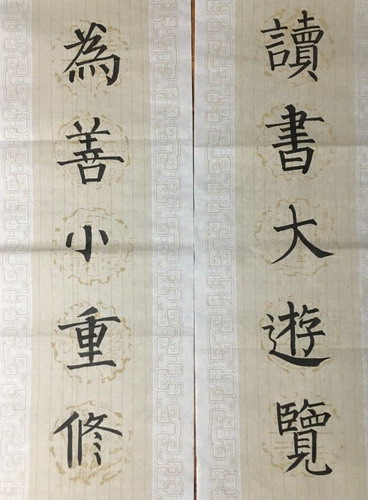 讀書大遊覽
為善小重修